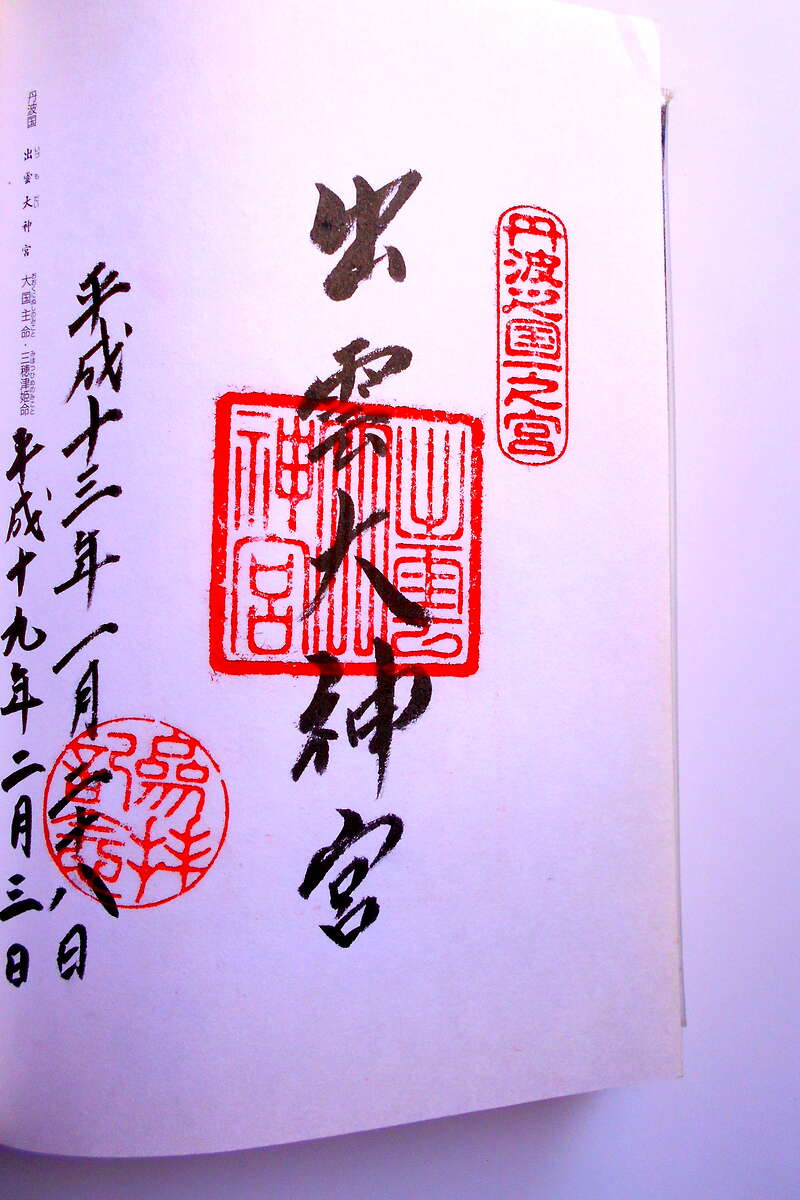 丹波国一之宮
出雲大神宮
出雲大神宮
平成十三年一月二十八日
參拝記念
平成十九年二月三日
丹波国 出雲大神宮 大国主命・三穂津姫命